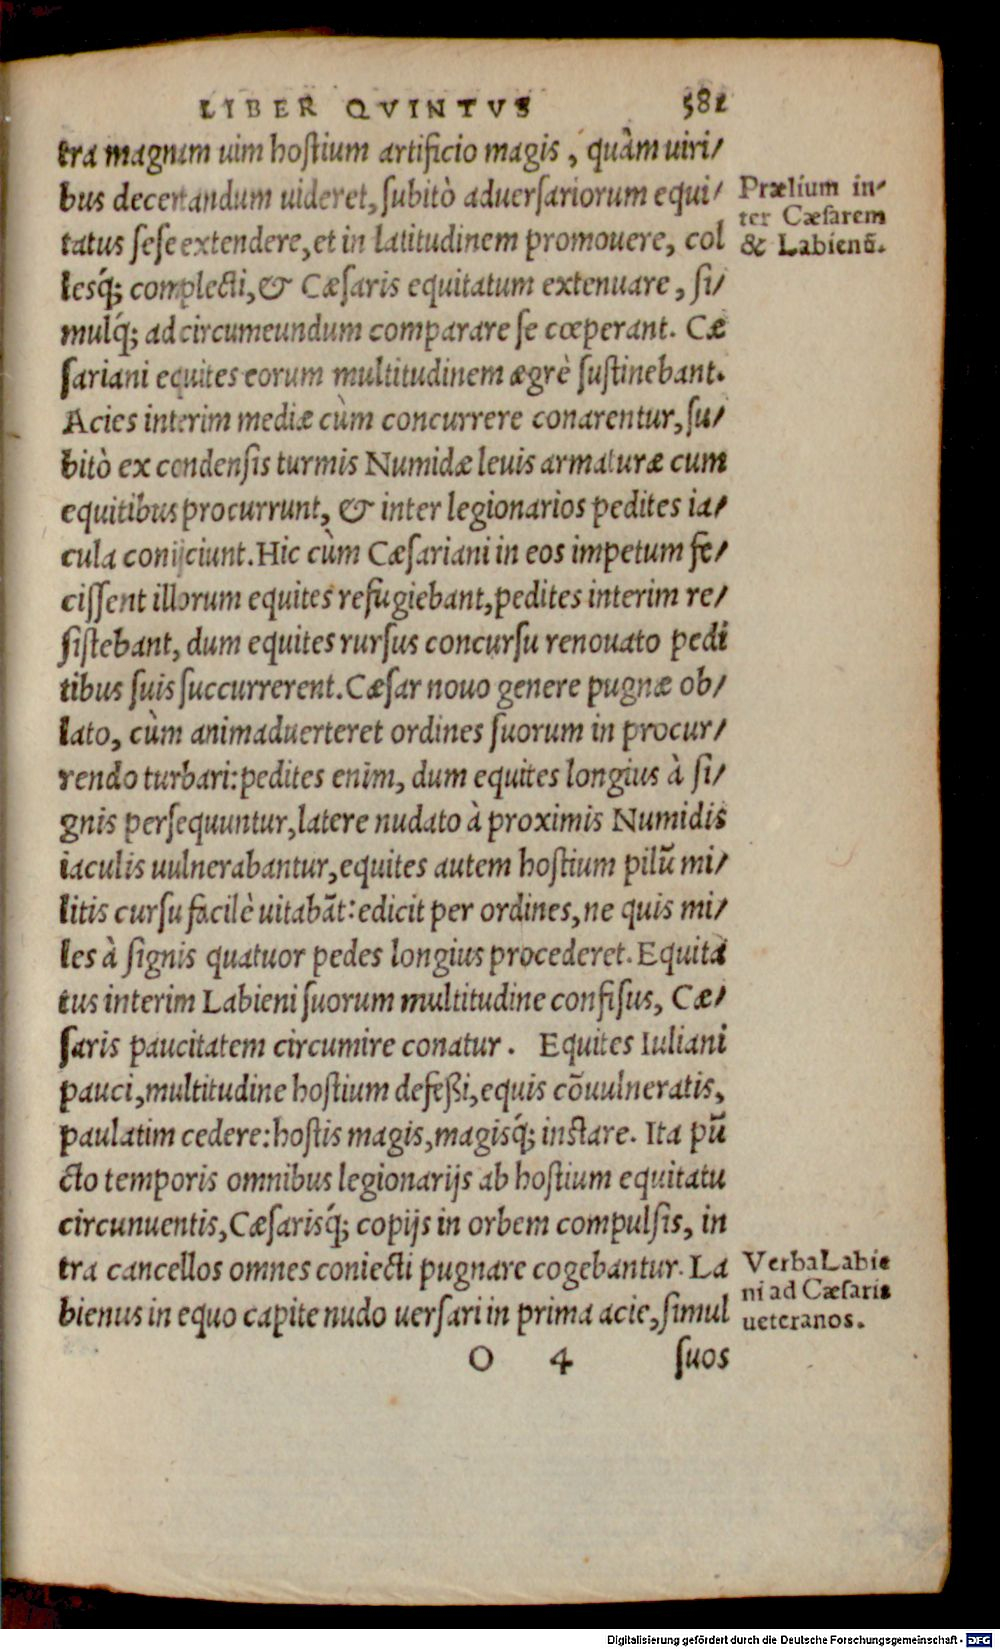 LIBER QVINTVS 581
tra magnam uim hoſtium artificio magis, quàm uiri/
bus decertandum uideret, ſubitò aduerſariorum equi/
tatus ſeſe extendere, et in latitudinem promouere, col
leſq́; complecti, & Cæſaris equitatum extenuare, ſi/
mulq́; ad circumeundum comparare ſe cœperant. Cæ
ſariani equites eorum multitudinem ægrè ſuſtinebant.
Acies interim mediæ cùm concurrere conarentur, ſu/
bitò ex condenſis turmis Numidæ leuis armaturæ cum
equitibus procurrunt, & inter legionarios pedites ia/
cula conijciunt. Hic cùm Cæſariani in eos impetum fe/
ciſſent illorum equites refugiebant, pedites interim re/
ſiſtebant, dum equites rurſus concurſu renouato pedi
tibus ſuis ſuccurrerent. Cæſar nouo genere pugnæ ob/
lato, cùm animaduerteret ordines ſuorum in procur/
rendo turbari: pedites enim, dum equites longius à ſi/
gnis perſequuntur, latere nudato à proximis Numidis
iaculis uulnerabantur, equites autem hoſtium pilũ mi/
litis curſu facilè uitabãt: edicit per ordines, ne quis mi/
les à ſignis quatuor pedes longius procederet. Equita
tus interim Labieni ſuorum multitudine confiſus, Cæ/
ſaris paucitatem circumire conatur. Equites Iuliani
pauci, multitudine hoſtium defeßi, equis cõuulneratis,
paulatim cedere: hoſtis magis, magiſq́; inſtare. Ita pũ
cto temporis omnibus legionarijs ab hoſtium equitatu
circunuentis, Cæſariſq́; copijs in orbem compulſis, in
tra cancellos omnes coniecti pugnare cogebantur. La
bienus in equo capite nudo uerſari in prima acie, ſimul
O 4 ſuos
Prælium in/
ter Cæſarem
& Labienũ.
Verba Labie
ni ad Cæſaris
ueteranos.
Digitalisierung gefördert durch die Deutsche Forschungsgemeinschaft - DFG